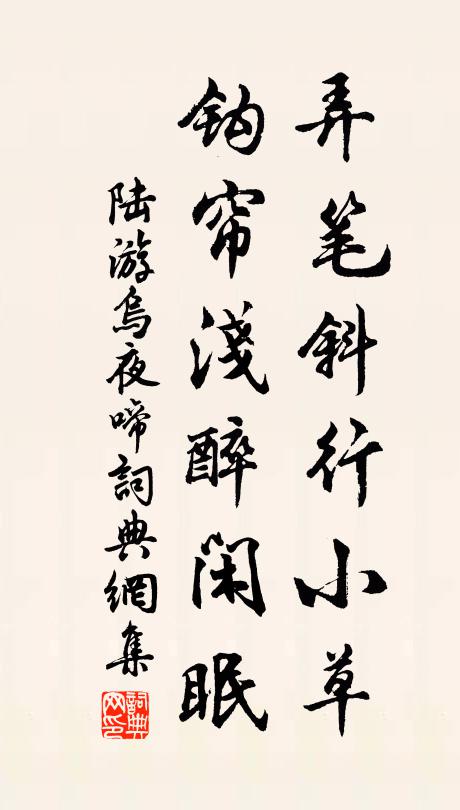 弄笔斜行小草
钩帘淺醉闲眠
陆游烏夜啼詞典網集
詞典网印